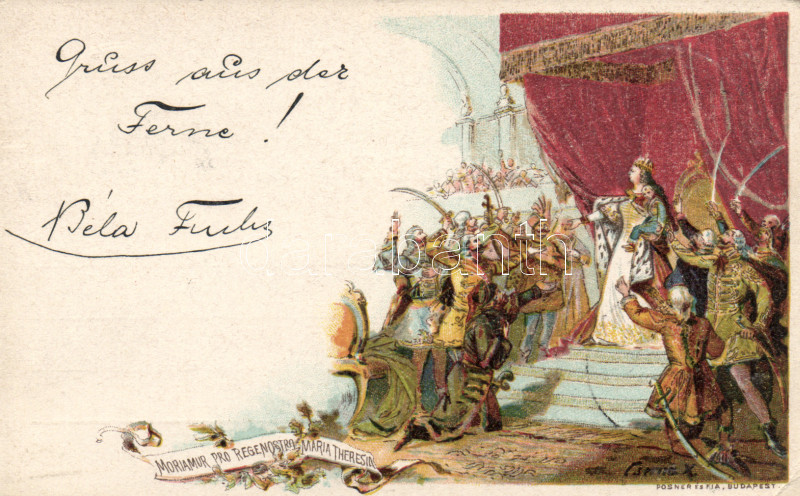 Gruss aus der
Ferne !
Béla Fuchs
darabanth
MORIAMUR PRO REGE NOSTRO MARIA THERESIA
POSNER ÉS FIA, BUDAPEST.